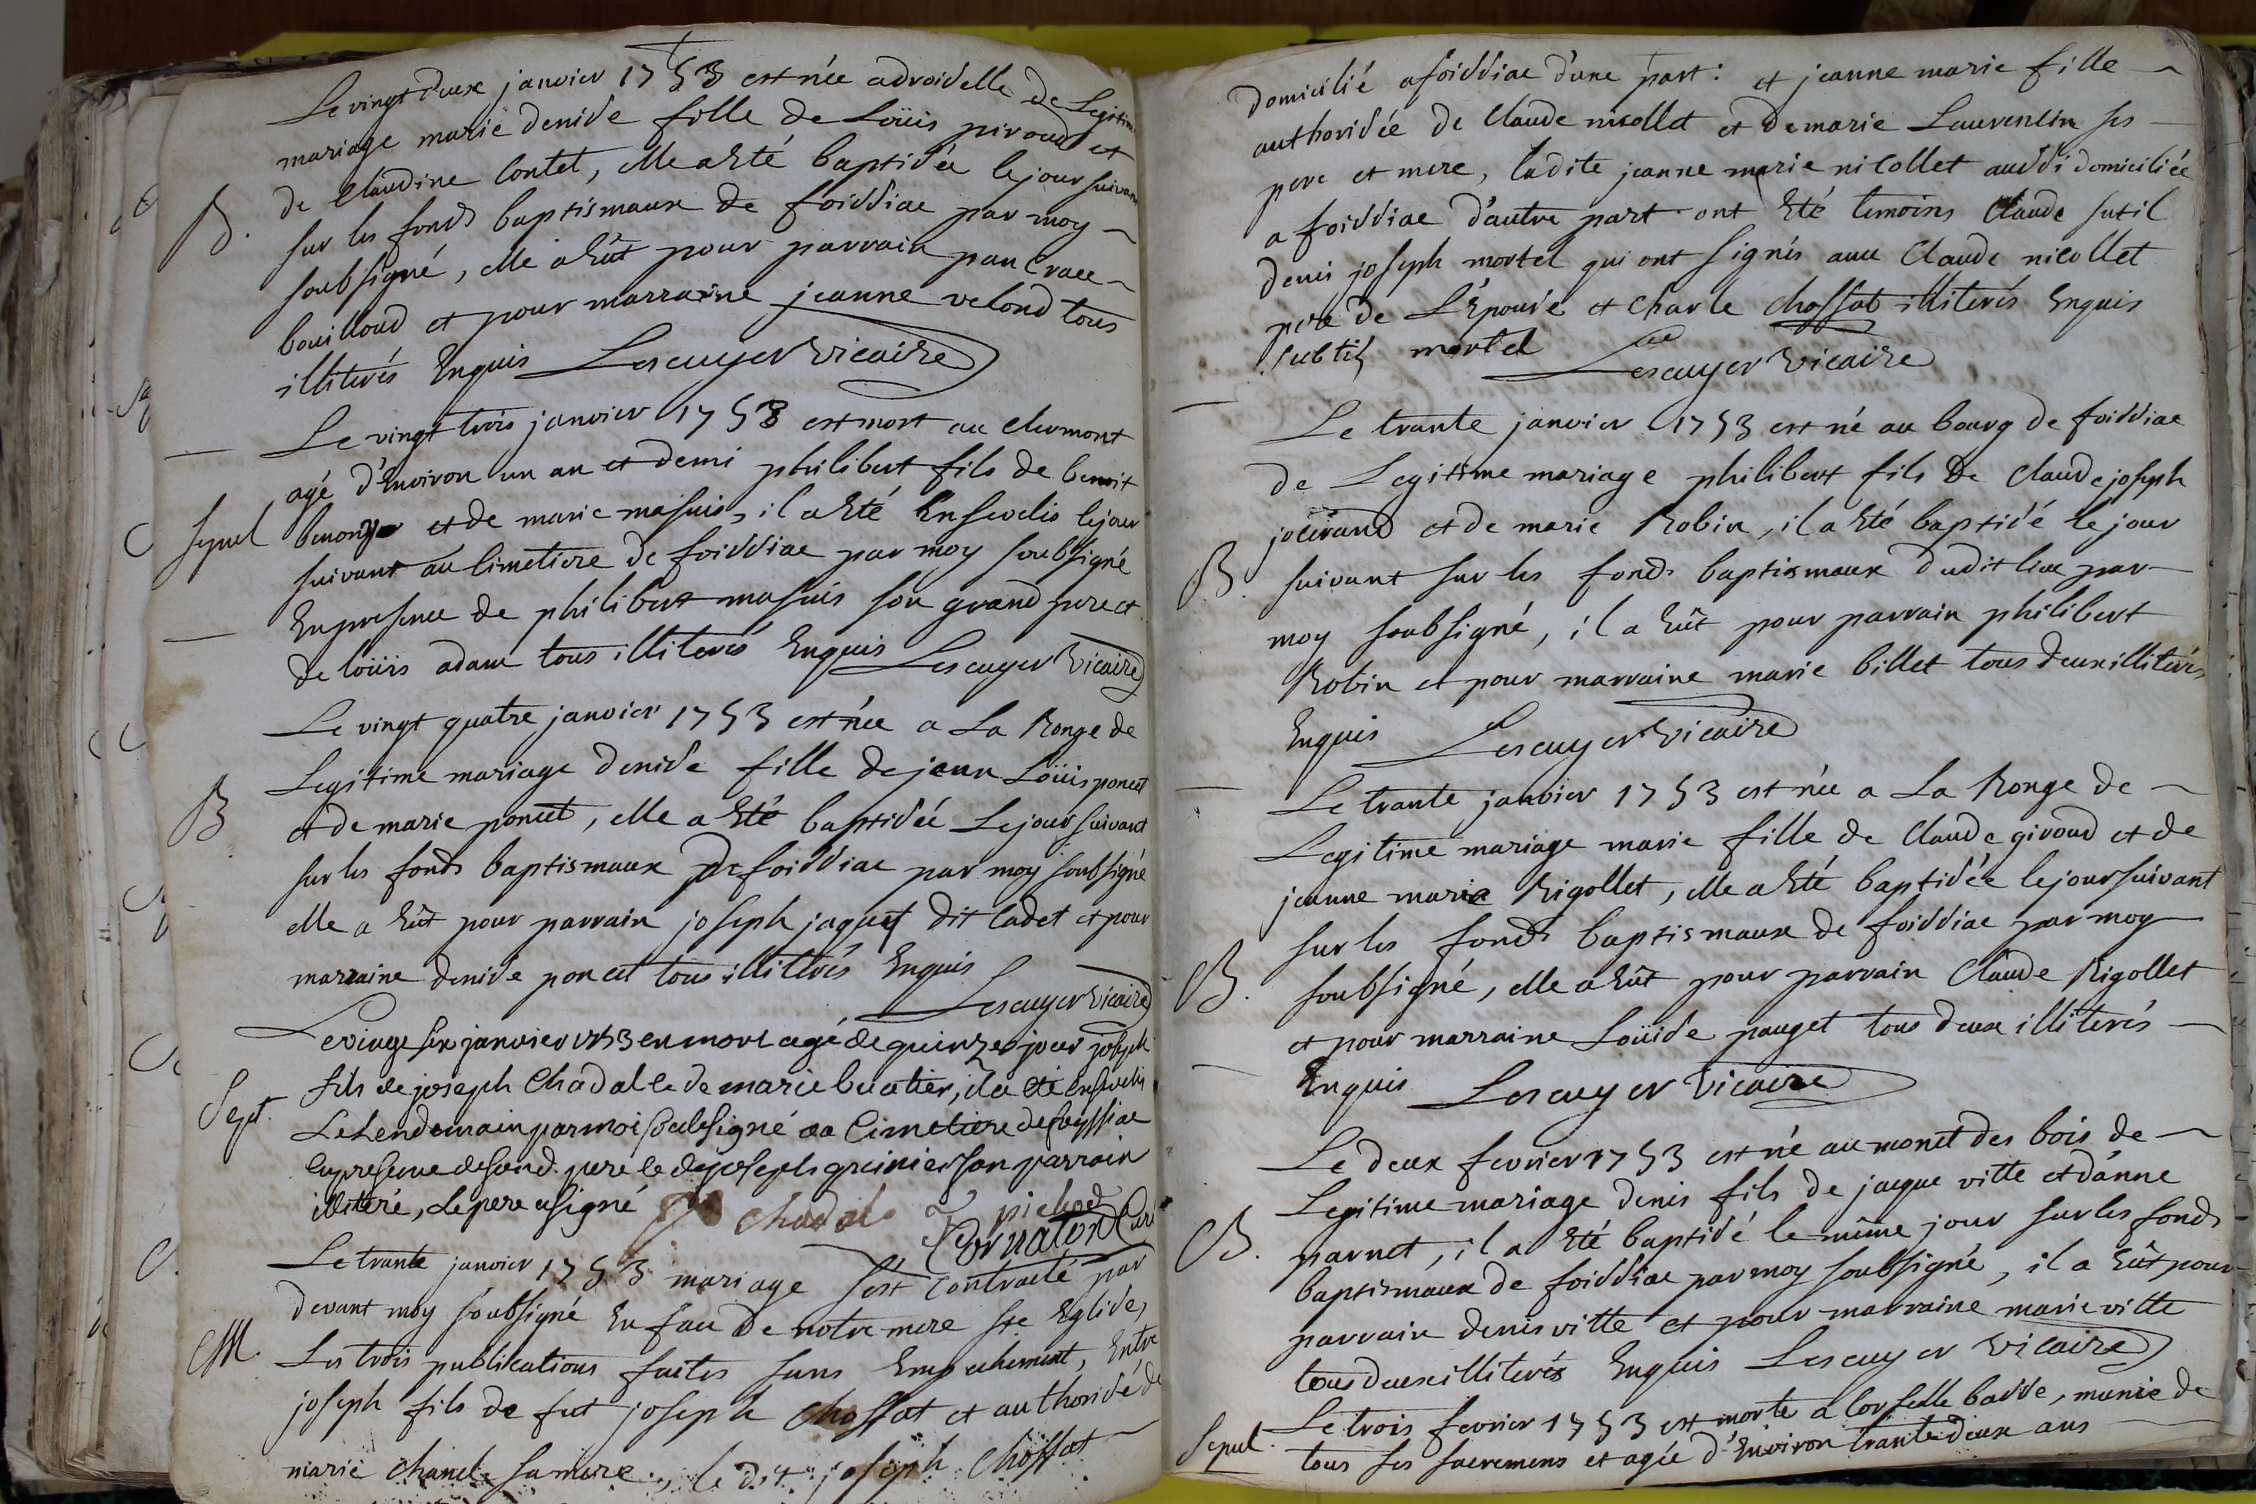 Le vingt deux janvier 1753 est née adroiselle de Legitim
mariage marie denise fille de Loüis piroud et
de Claudine Contet, elle a Eté baptisée le jour suivant
B.
sur les fonds baptismaux de foissiac par moy
soubsigné, elle a Eût pour parrain pancrace
bouilloud et pour marraine jeanne velond tous
illiterés Enquis Lescuyer vicaire
Le vingt trois janvier 1753 est mort au clermont
agé d'Environ un an et demi philibert fils de benoit
Sepul
et de marie masuis, il a Eté Ensevelis le jour
suivant au Cimetiere de foissiac par moy soubsigné
En presence de philibert masuis son grand pere et
de loüis adam tous illiterés Enquis Lescuyer vicaire
Le vingt quatre janvier 1753 est née a La Ronge de
Legitime mariage denise fille de jean Loüis poncet
B
et de marie poncet, elle a Eté baptisée Le jour suivant
sur les fonds baptismaux De foissiac par moy soubsigné
elle a Eût pour parrain joseph jaquet dit Cadet et pour
marraine denise poncet tous illiterés Enquis
Lescuyer vicaire
Le vingt six janvier 1753 est mort agé de quinze jour joseph
fils de joseph Chadal et de marie buatier, il a eté Enseveli
Sept.
Le Lendemain par moi soubsigné au Cimetiere de foyssiac
En presence de son d. pere et de joseph greinier son parrain
illiteré, Le pere a signé Chadal pichod
Cornaton Curé
Le trante janvier 1753 mariage s'est Contracté par
devant moy soubsigné En face De notre mere ste Eglise,
M.
Les trois publications faites sans Empechement, Entre
joseph fils de fut joseph Chossat et authorisé de
marie Chanel sa mere, le dit joseph Chossat
Domicilié a foissiac d'une part: et jeanne marie fille
authorisée de Claude nicollet et de marie Laurencin ses
pere et mere, ladite jeanne marie nicollet aussi domiciliée
a foissiac d'autre part ont Eté temoins Claude sutil
denis joseph mortel qui ont signés avec Claude nicollet
pere de L'Epouse et Charle Chossat illiterés Enquis
subtil mortel Lescuyer vicaire
Le trante janvier 1753 est né au bourg de foissiac
de Legitime mariage philibert fils De Claude joseph
jocerand et de marie Robin, il a Eté baptisé le jour
B.
suivant sur les fonds baptismaux dudit lieu par
moy soubsigné, il a Eût pour parrain philibert
Robin et pour marraine marie billet tous deux illiterés
Enquis Lescuyer vicaire
Le trante janvier 1753 est née a La Ronge de
Legitime mariage marie fille de Claude giroud et de
jeanne marie Rigollet, elle a Eté baptisée le jour suivant
sur les fonds baptismaux de foissiac par moy
B.
soubsigné, elle a Eût pour parrain Claude Rigollet
et pour marraine Loüise pauget tous deux illiterés
Enquis Lescuyer vicaire
Le deux fevrier 1753 est né au monet des bois de
Legitime mariage denis fils de jacque vitte et d'anne
B.
parnet, il a Eté baptisé le même jour sur les fonds
baptismaux de foissiac par moy soubsigné, il a Eût pour
parrain denis vitte et pour marraine marie vitte
tous deux illiterés Enquis Lescuyer vicaire
Le trois fevrier 1753 est morte a Corselle basse, munie de
Sepul.
tous ses sacremens et agée d'Environ trante deux ans